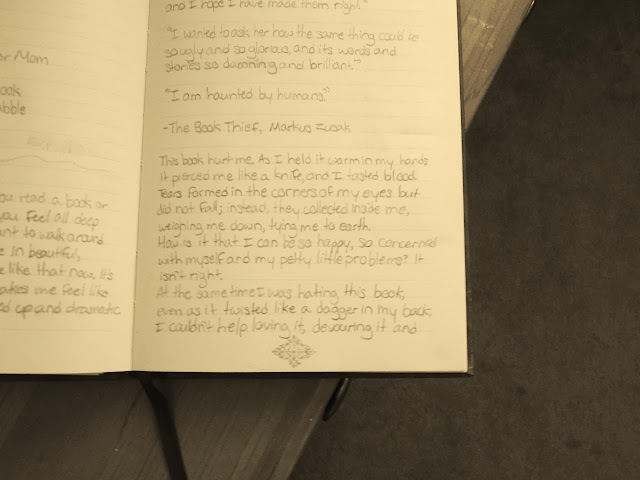 or Mom
ook
abble
you read a book or
you feel all deep
ant to walk around
e in beautiful,
e like that now. It's
akes me feel like
ed up and dramatic
and I hope I have made them right."
"I wanted to ask her how the same thing could be
so ugly and so glorious, and its words and
stories so damning and brilliant."
"I am haunted by humans."
-The Book Thief, Markus Zusak
This book hurt me. As I held it warm in my hands
it pierced me like a knife, and I tasted blood.
Tears formed in the corners of my eyes but
did not fall; instead, they collected inside me,
weighing me down, tying me to earth.
How is it that I can be so happy, so concerned
with myself and my petty little problems? It
isn't right.
At the same time I was hating this book,
even as it twisted like a dagger in my back,
I couldn't help loving it, devouring it and